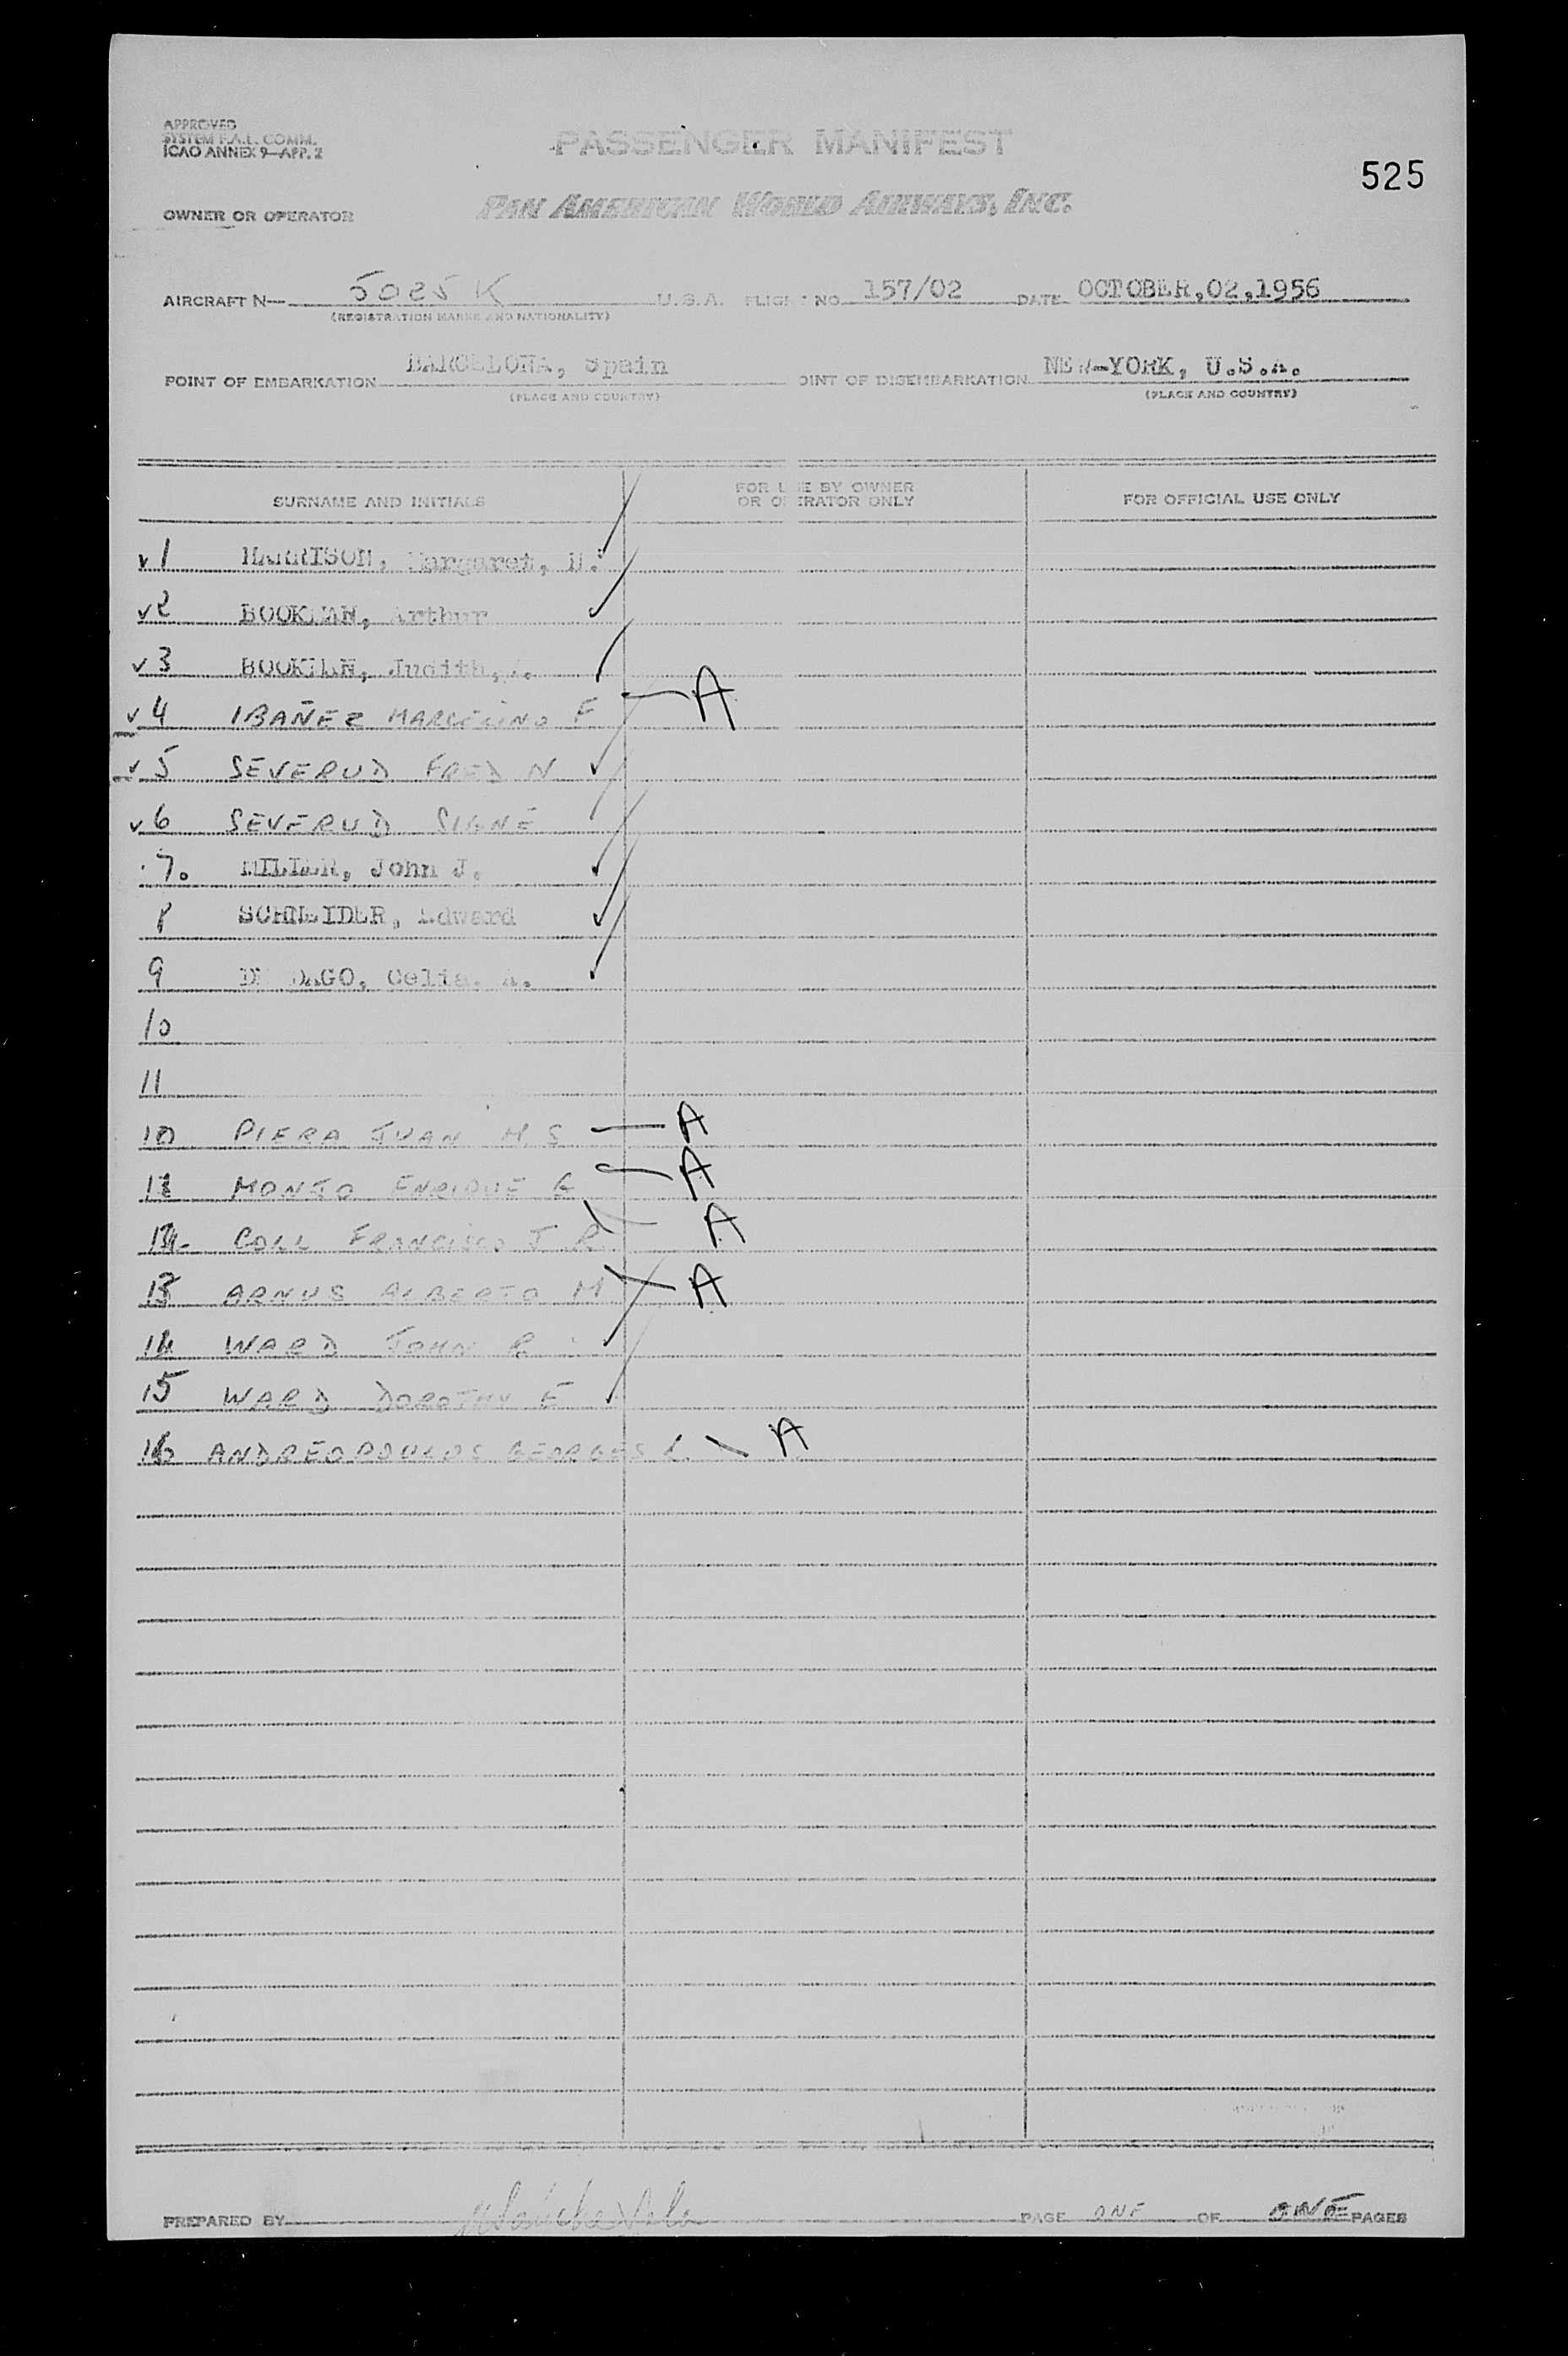 APPROVED
SYSTEM F.A.L. COMM.
ICAO ANNEX 9—APP. 2
PASSENGER MANIFEST
525
OWNER OR OPERATOR
PAN AMERICAN WORLD AIRWAYS, INC.
AIRCRAFT N— 5025 K U.S.A. FLIGHT NO. 157/02 DATE OCTOBER,02,1956
(REGISTRATION MARKS AND NATIONALITY)
POINT OF EMBARKATION BARCELONA, Spain OINT OF DISEMBARKATION NEW-YORK, U.S.A.
(PLACE AND COUNTRY) (PLACE AND COUNTRY)
SURNAME AND INITIALS
FOR USE BY OWNER
OR OPERATOR ONLY
FOR OFFICIAL USE ONLY
v 1 HARRISON, Margaret,
v 2 BOOKMAN, Arthur
v 3 BOOKMAN, Judith,
v 4 IBAÑEZ MARCELINO F — A
v 5 SEVERUD FRED N
v 6 SEVERUD SIGNE
7. MILLER, John J.
8 SCHNEIDER, Edward
9 Celia. A.
10
11
10 PIERA JUAN M S — A
11 MONJO ENRIQUE G — A
12 COLL FRANCISCO J R A
13 ARNUS ALBERTO M A
14 WARD JOHN R
15 WARD DOROTHY E
16 ANDREOPOULOS GEORGES A
PREPARED BY
PAGE ONE OF ONE PAGES